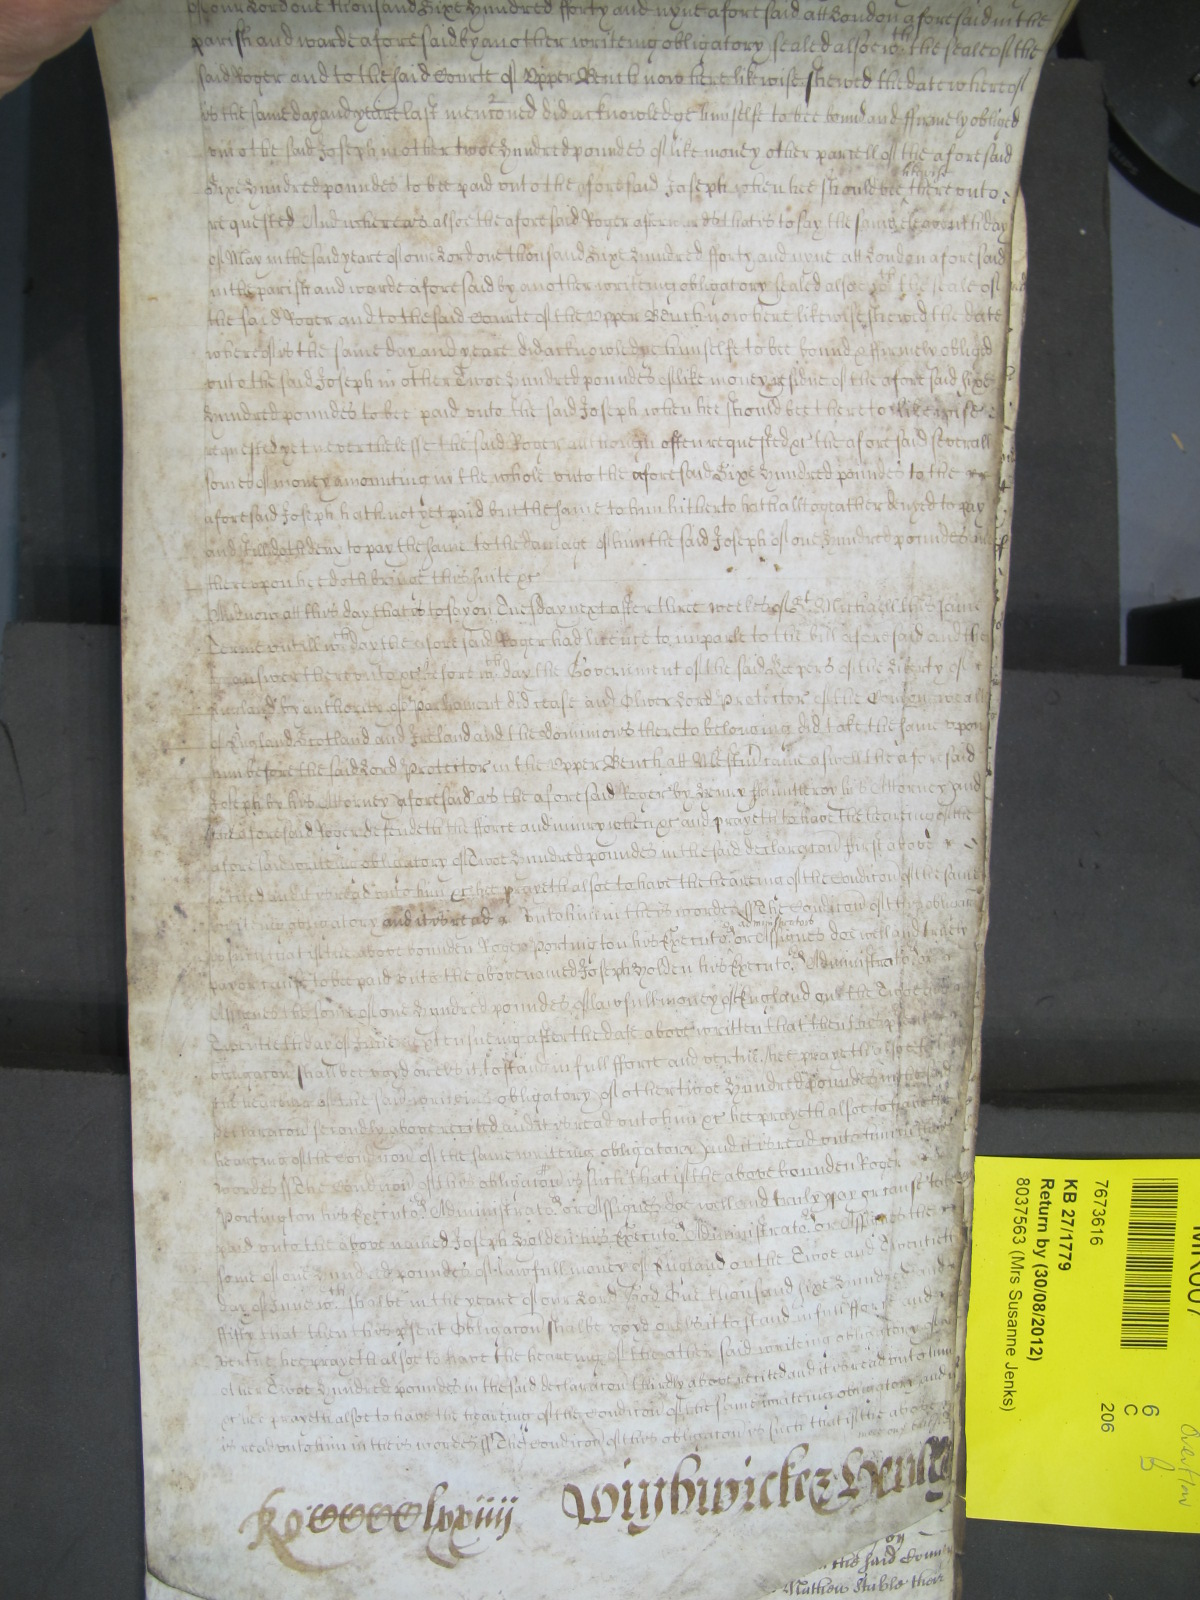 of our Lord one thousand Sixe Hundred fforty and nyne aforesaid att London aforesaid in the
parish and warde aforesaid by another writeing obligatory sealed alsoe wth the seale of the
said Roger and to the said Courte of Upper Bench now here likewise shewed the date whereof
is the same day and yeare last mentoned did acknowledge himselfe to bee bound and ffirmely obliged
unto the said Joseph in other twoe Hundred poundes of like money other parcell of the aforesaid
Sixe Hundred poundes to bee paid unto the aforesaid Joseph when hee should bee likewise thereunto
requested And whereas alsoe the aforesaid Roger afterwards that is to say the same day
of May in the said yeare of our Lord one thousand Sixe Hundred fforty and nyne att London aforesaid
in the parish and warde aforesaid by another writeing obligatory sealed alsoe wth the seale of
the said Roger and to the said Courte of the Upper Bench now here likewise shewed the date
whereof is the same day and yeare did acknowledge himselfe to bee bound & ffirmely obliged
unto the said Joseph in other Twoe Hundred poundes of like money residue of the aforesaid Sixe
Hundred poundes to bee paid unto the said Joseph when hee should bee thereto likewise
requested yet neverthelesse the said Roger although often requested &c the aforesaid severall
somes of money amounting in the whole unto the aforesaid Sixe Hundred poundes to the
aforesaid Joseph hath not yet paid but the same to him hitherto hath alltogeather denyed to pay
and still doth deny to pay the same to the damage of him the said Joseph of one Hundred poundes and
thereupon hee doth bringe this suite &c
And now att this day that is to say on Tuesday next after three weekes of St Michaell this same
Terme untill wch day the aforesaid Roger had licence to imparle to the bill aforesaid and then
to answer thereunto &c before wch day the Government of the said Keepers of the Liberty of
England by authority of Parliament did cease and Oliver Lord Protector of the Comonwealth
of England Scotland and Ireland and the Dominions thereto belonging did take the same upon
him before the said Lord Protector in the Upper Bench att Westmr came aswell the aforesaid
Joseph by his Attorney aforesaid as the aforesaid Roger by Henry Fauntleroy his Attorney And
the aforesaid Roger defendeth the fforce and iniury when &c and prayeth to have the heareing of the
aforesaid writeing obligatory of Twoe Hundred poundes in the said declaracon first above
recited and it is read unto him &c hee prayeth alsoe to have the heareing of the Condicon of the same
writeing obligatory and it is read unto him in theis wordes The Condicon of this obligacon
is such that if the above bounden Roger Portington his Executors administrators or Assignes doe well and truely
pay or cause to bee paid unto the abovenamed Joseph Holden his Executors Administrators or
Assignes the some of one Hundred poundes of lawfull money of England on the Twoe and
Twentieth day of June next ensueing after the date above written that then this
obligacon shall bee voyd or els it to stand in full fforce and vertue hee prayeth alsoe to
the heareing of the said writeing obligatory of other twoe Hundred poundes in the said
declaracon secondly above recited and it is read unto him &c hee prayeth alsoe to have the
heareing of the Condicon of the same writeing obligatory and it is read unto him in theis
wordes The Condicon of this obligacon is such that if the above bounden Roger
Portington his Executors Administrators or Assignes doe well and truely pay or cause to bee
paid unto the above named Joseph Holden his Executors Administrators or Assignes the
some of one Hundred poundes of lawfull money of England on the Twoe and Twentieth
day of June wch shalbe in the yeare of our Lord God One thousand sixe Hundred and
ffifty that then this psent Obligacon shalbe voyd or els it to stand in full fforce and
vertue hee prayeth alsoe to have the heareing of the other said writeing obligatory of
other Twoe Hundred poundes in the said declaracon thirdly above recited and it is read unto him
&c hee prayeth alsoe to have the heareing of the Condicon of the same writeing obligatory and it
is read unto him in theis wordes The Condicon of this obligacon is such that if the above
Ro CCCClxxiiij Wijhwicke & Henly
the said
Mathew their
7673616
KB 27/1779
Return by (30/08/2012)
8037563 (Mrs Susanne Jenks)
6
C
206
Overflow
B